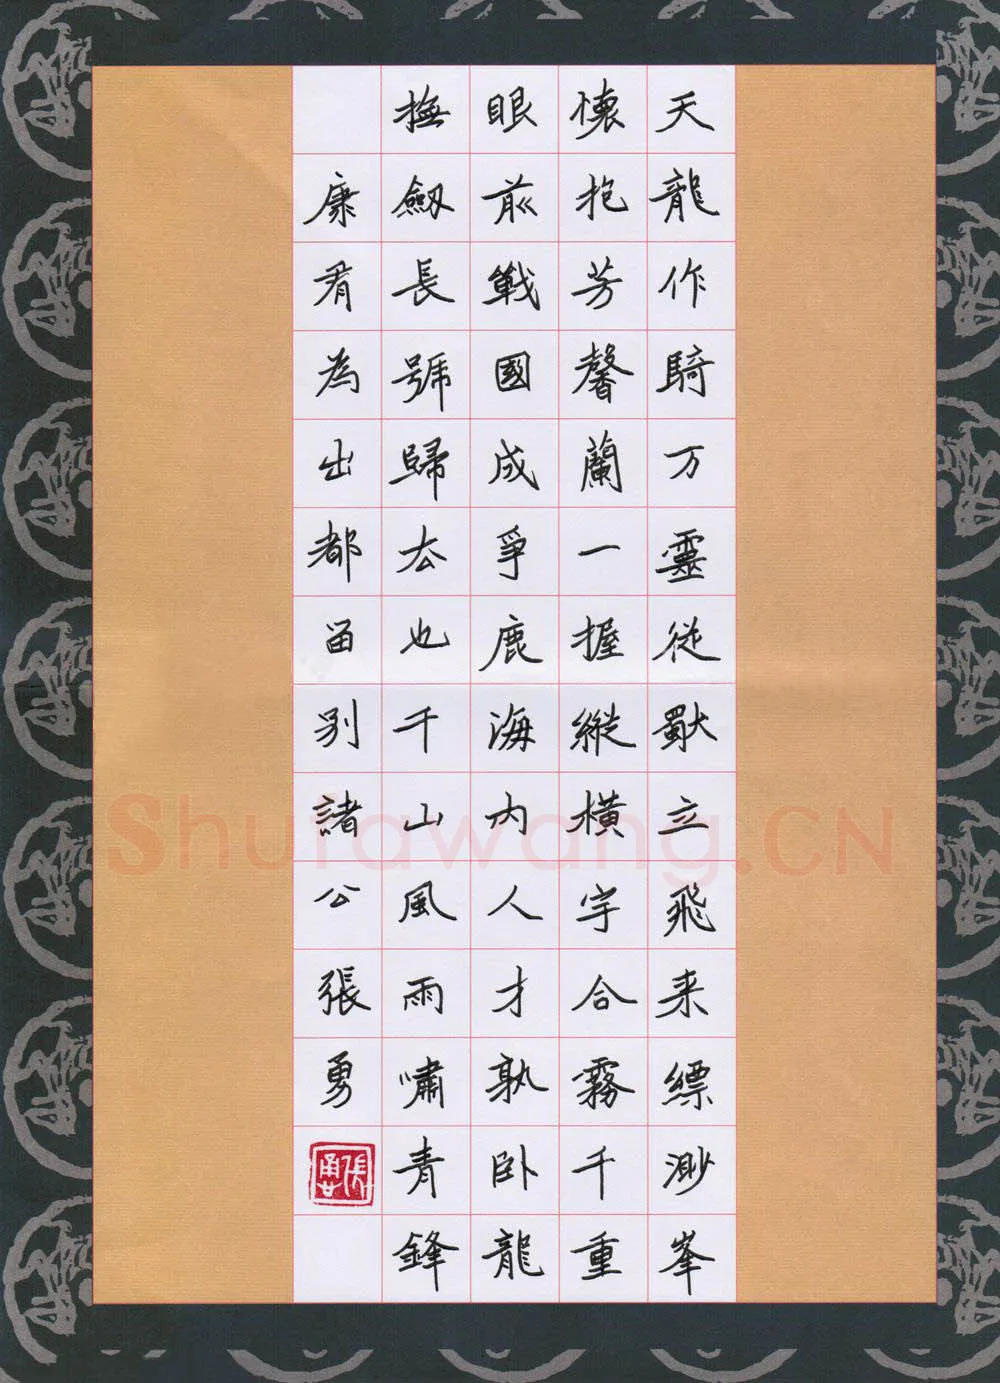 天龍作騎万靈從獸立飛来縹渺峯
懷抱芳馨蘭一握縱橫宇合霧千重
眼前戰國成爭鹿海內人才孰卧龍
撫劔長號歸去也千山風雨嘯青鋒
康有為出都留別諸公張勇
張勇
Shufawang.CN